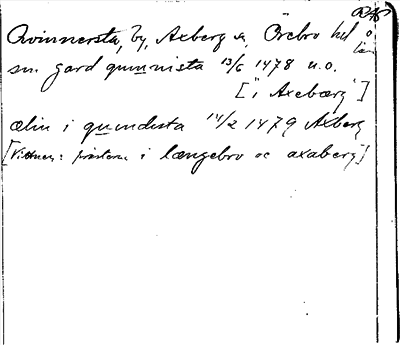 RAp
Qvinnersta, by, Axberg sn, Örebro hd o län
sn. gard qwinnista 13/6 1478 u.o.
["i Axebærg"]
ælin i quindista 14/2 1479 Axberg
[Vittnen: prästerna i længebro oc axaberg]